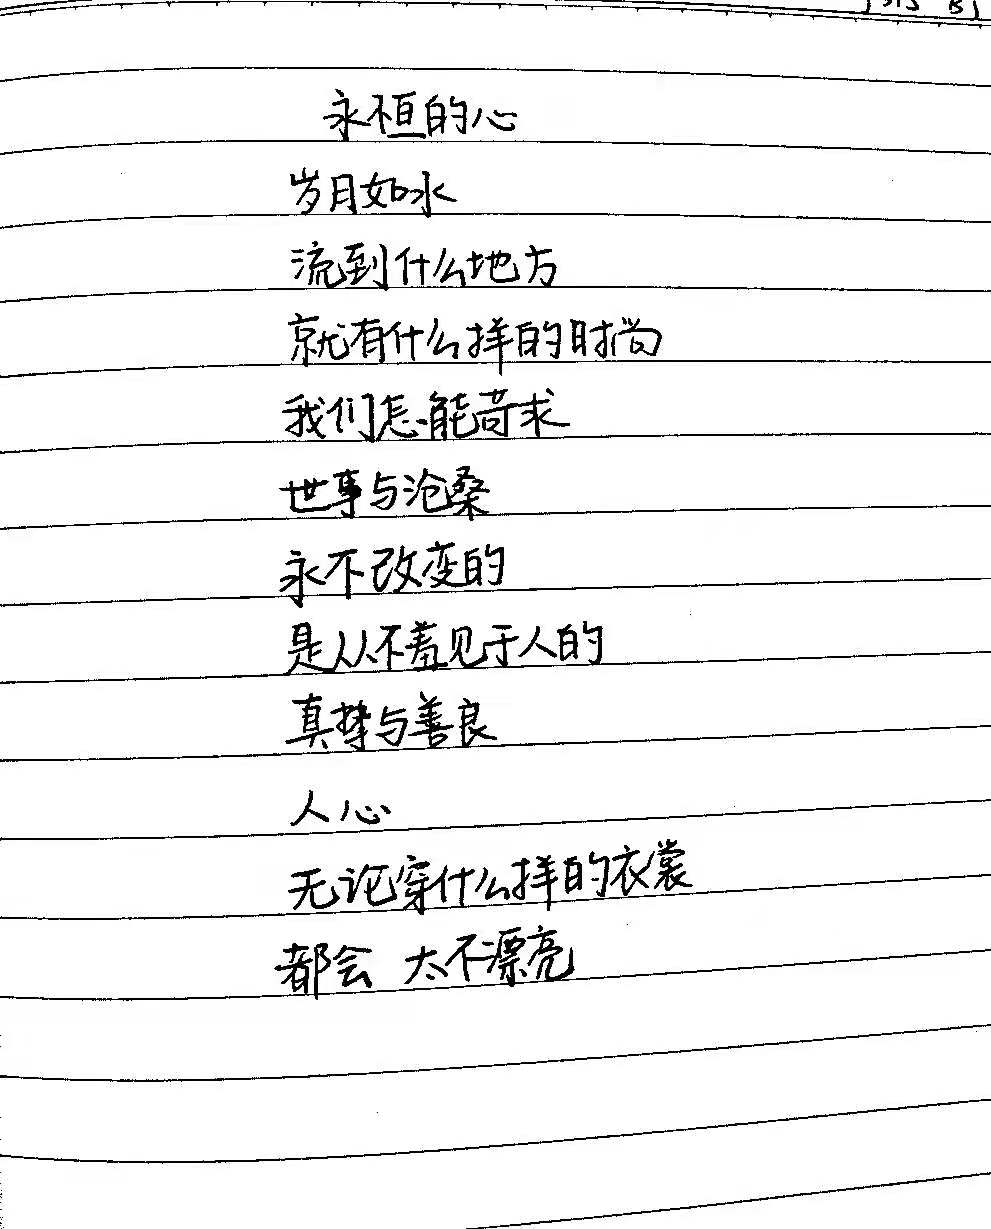 永恒的心
岁月如水
流到什么地方
就有什么样的时尚
我们怎能苛求
世事与沧桑
永不改变的
是从不羞见于人的
真挚与善良
人心
无论穿什么样的衣裳
都会 太不漂亮